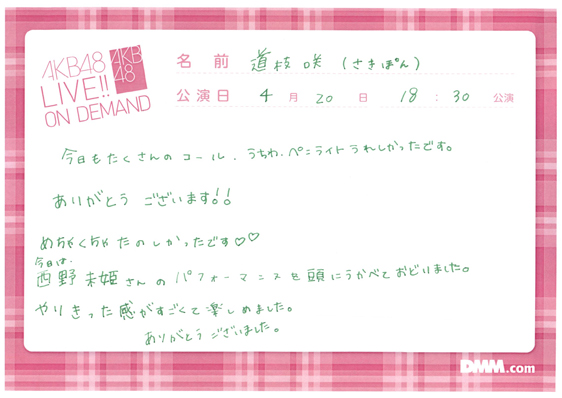 AKB48
LIVE!!
ON DEMAND
AKB
48
名前 道枝咲(さきぽん)
公演日 4月20日 18:30公演
今日もたくさんのコール、うちわ、ペンライトうれしかったです。
ありがとうございます!!
めちゃくちゃたのしかったです♡♡
今日は、
西野未姫さんのパフォーマンスを頭にうかべておどりました。
やりきった感がすごくて楽しめました。
ありがとうございました。
DMM.com